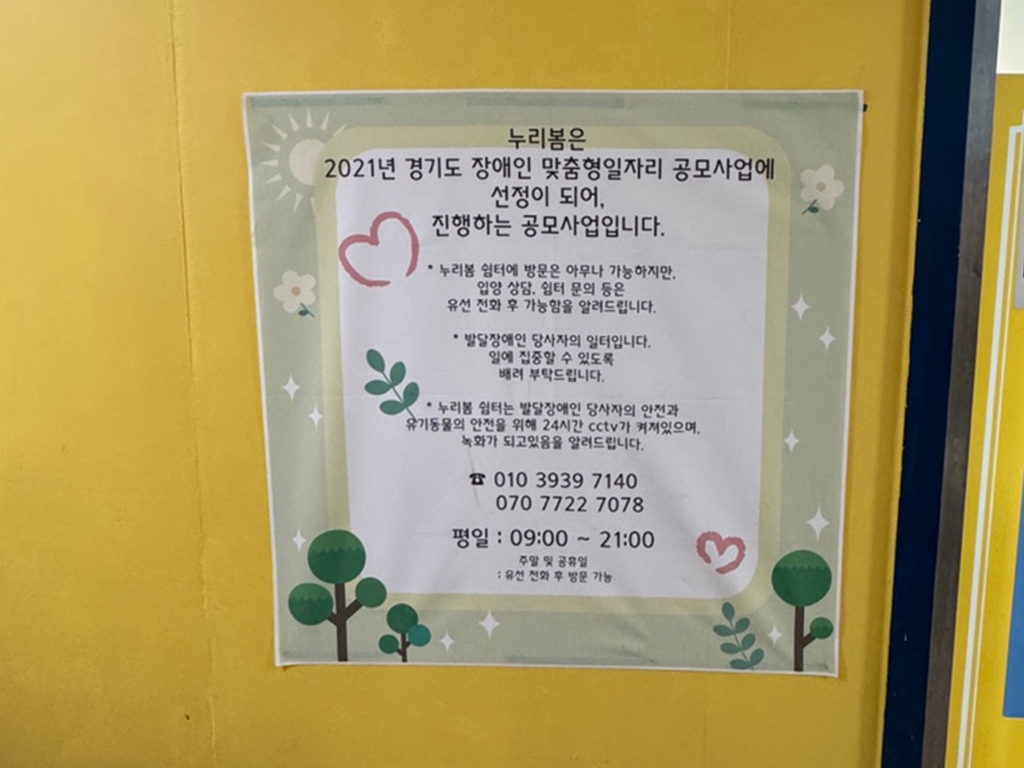 누리봄은
2021년 경기도 장애인 맞춤형일자리 공모사업에
선정이 되어,
진행하는 공모사업입니다.
* 누리봄 쉼터에 방문은 아무나 가능하지만,
입양 상담, 쉼터 문의 등은
유선 전화 후 가능함을 알려드립니다.
* 발달장애인 당사자의 일터입니다.
일에 집중할 수 있도록
배려 부탁드립니다.
* 누리봄 쉼터는 발달장애인 당사자의 안전과
유기동물의 안전을 위해 24시간 cctv가 켜져있으며,
녹화가 되고있음을 알려드립니다.
☎ 010 3939 7140
070 7722 7078
평일 : 09:00 ~ 21:00
주말 및 공휴일
: 유선 전화 후 방문 가능